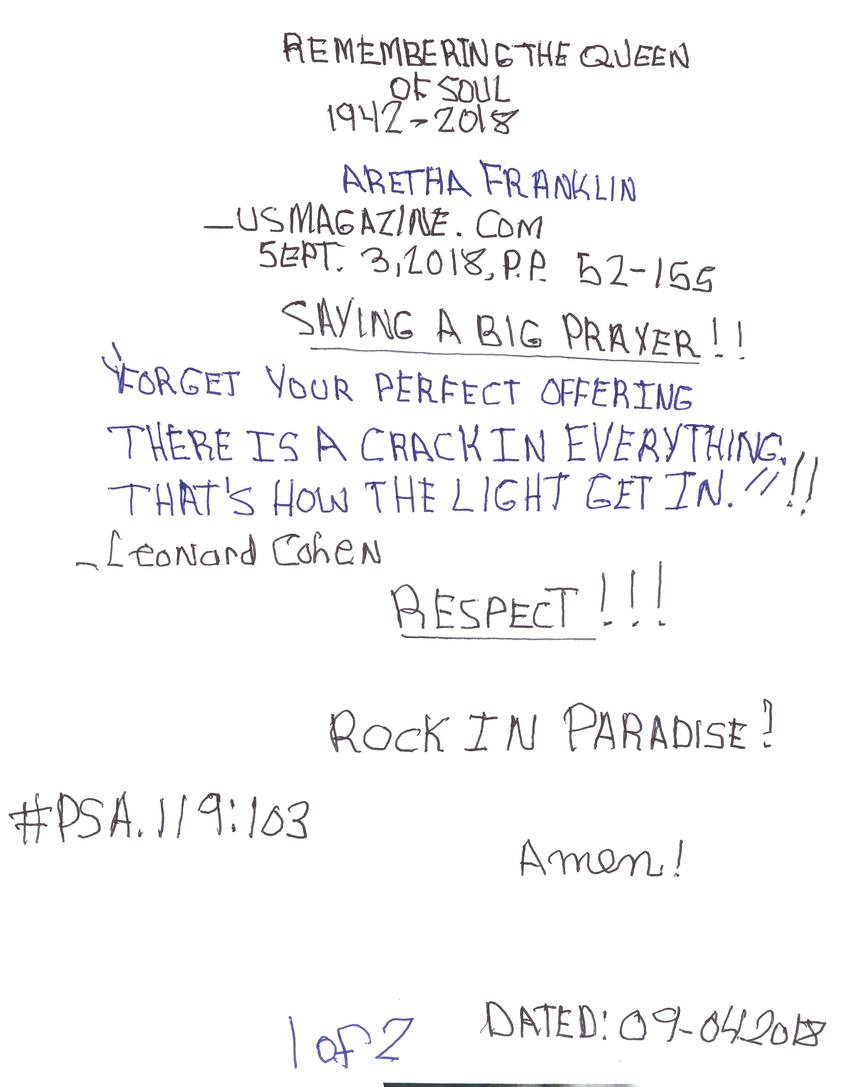 REMEMBERING THE QUEEN
OF SOUL
1942-2018
ARETHA FRANKLIN
—USMAGAZINE.COM
SEPT. 3,2018, P.P. 52-155
SAYING A BIG PRAYER!!
"FORGET YOUR PERFECT OFFERING
THERE IS A CRACK IN EVERYTHING.
THAT'S HOW THE LIGHT GET IN."!!
-Leonard Cohen
RESPECT!!!
ROCK IN PARADISE!
#PSA.119:103
Amen!
1 of 2
DATED: 09-04-2018